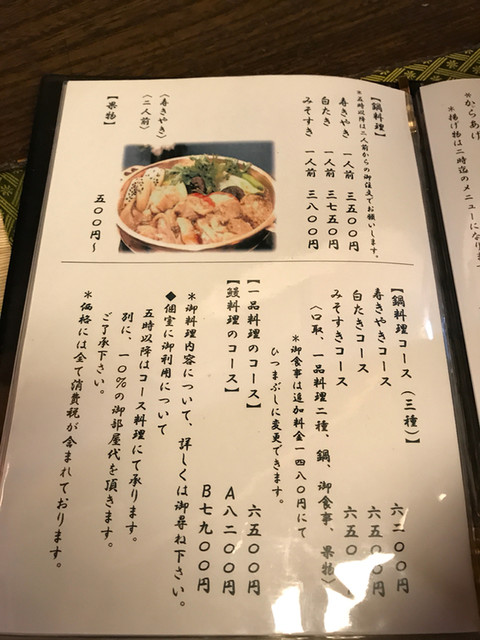 *からあげ
*揚げ物は二時迄のメニューにな
【鍋料理】
*五時以降は二人前からの御注文でお願いします。
寿きやき 一人前 三五〇〇円
白たき 一人前 三七五〇円
みそすき 一人前 三八〇〇円
(寿きやき)
(二人前)
【果物】 五〇〇円〜
【鍋料理コース(三種)】
寿きやきコース 六二〇〇円
白たきコース 六五〇〇円
みそすきコース 六五〇
(口取、一品料理二種、鍋、御食事、果物)
*御食事は追加料金一四八〇円にて
ひつまぶしに変更できます。
【一品料理のコース】 六五〇〇円
【鰻料理のコース】 A八二〇〇円
B七九〇〇円
*御料理内容について、詳しくは御尋ね下さい。
◆個室に御利用について
五時以降はコース料理にて承ります。
別に、一〇%の御部屋代を頂きます。
ご了承下さい。
*価格には全て消費税が含まれております。